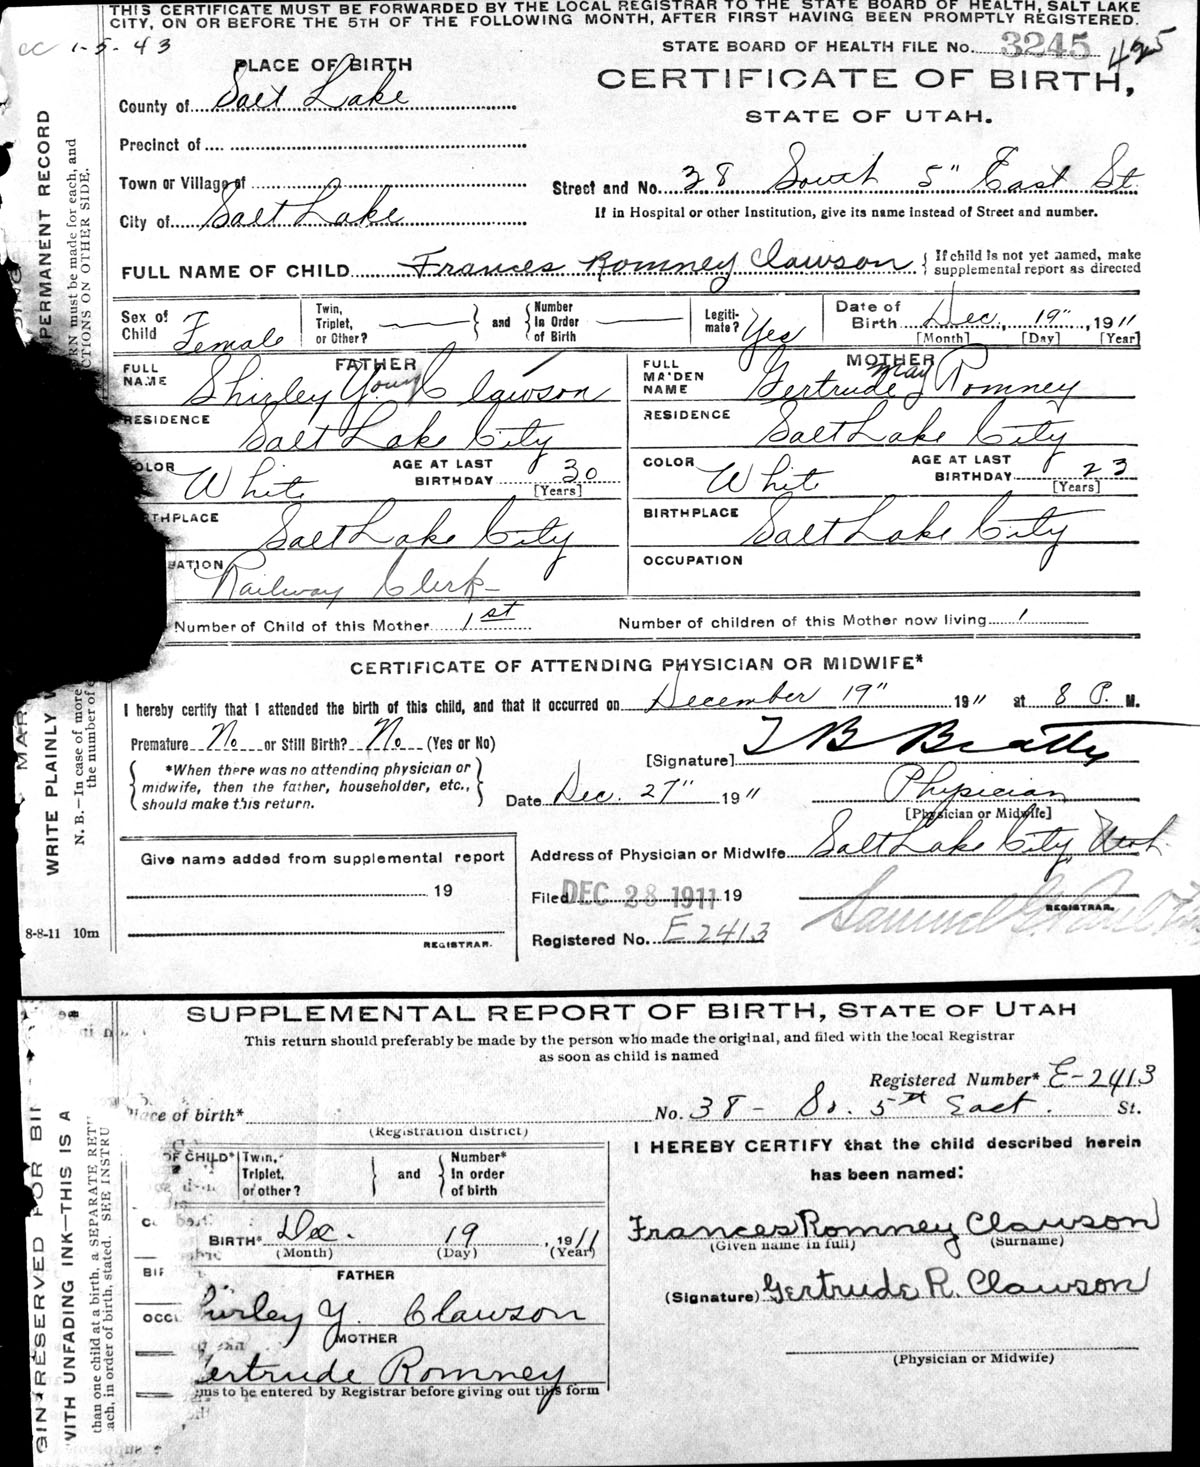 THIS CERTIFICATE MUST BE FORWARDED BY THE LOCAL REGISTRAR TO THE STATE BOARD OF HEALTH, SALT LAKE
CITY, ON OR BEFORE THE 5TH OF THE FOLLOWING MONTH, AFTER FIRST HAVING BEEN PROMPTLY REGISTERED.
cc 1-5-43
STATE BOARD OF HEALTH FILE No. 3245 425
PLACE OF BIRTH
CERTIFICATE OF BIRTH,
STATE OF UTAH.
County of Salt Lake
Precinct of
Town or Village of
Street and No. 38 South 5" East St.
City of Salt Lake
If in Hospital or other Institution, give its name instead of Street and number.
FULL NAME OF CHILD Frances Romney Clawson { If child is not yet named, make supplemental report as directed
Sex of Child Female
Twin, Triplet, or Other? — } and { Number In Order of Birth —
Legitimate? Yes
Date of Birth Dec. 19", 1911
[Month] [Day] [Year]
FATHER
FULL NAME Shirley Young Clawson
RESIDENCE Salt Lake City
COLOR White AGE AT LAST BIRTHDAY 30 [Years]
THPLACE Salt Lake City
ATION Railway Clerk
MOTHER
FULL MAIDEN NAME Gertrude May Romney
RESIDENCE Salt Lake City
COLOR White AGE AT LAST BIRTHDAY 23 [Years]
BIRTHPLACE Salt Lake City
OCCUPATION
Number of Child of this Mother 1st Number of children of this Mother now living 1
CERTIFICATE OF ATTENDING PHYSICIAN OR MIDWIFE*
I hereby certify that I attended the birth of this child, and that it occurred on December 19" 1911 at 8 P. M.
Premature No or Still Birth? No (Yes or No)
[Signature] T B Beatty
{ *When there was no attending physician or midwife, then the father, householder, etc., should make this return. }
Date Dec. 27" 1911
Physician
[Physician or Midwife]
Give name added from supplemental report
19
REGISTRAR.
Address of Physician or Midwife Salt Lake City, Utah
Filed DEC 28 1911 19
REGISTRAR.
Registered No. E 2413
8-8-11 10m
PERMANENT RECORD
WRITE PLAINLY
N. B.—In case of more
the number of
SUPPLEMENTAL REPORT OF BIRTH, STATE OF UTAH
This return should preferably be made by the person who made the original, and filed with the local Registrar
as soon as child is named
Registered Number* E-2413
Place of birth* No. 38 - So. 5th East. St.
(Registration district)
OF CHILD* Twin, Triplet, or other? } and { Number* In order of birth
BIRTH* Dec. 19, 1911
(Month) (Day) (Year)
FATHER
Shirley Y. Clawson
MOTHER
Gertrude Romney
ms to be entered by Registrar before giving out this form
I HEREBY CERTIFY that the child described herein
has been named:
Frances Romney Clawson
(Given name in full) (Surname)
(Signature) Gertrude R. Clawson
(Physician or Midwife)
GIN RESERVED FOR BI
WITH UNFADING INK—THIS IS A
than one child at a birth, a SEPARATE RET
ach, in order of birth, stated. SEE INSTRU